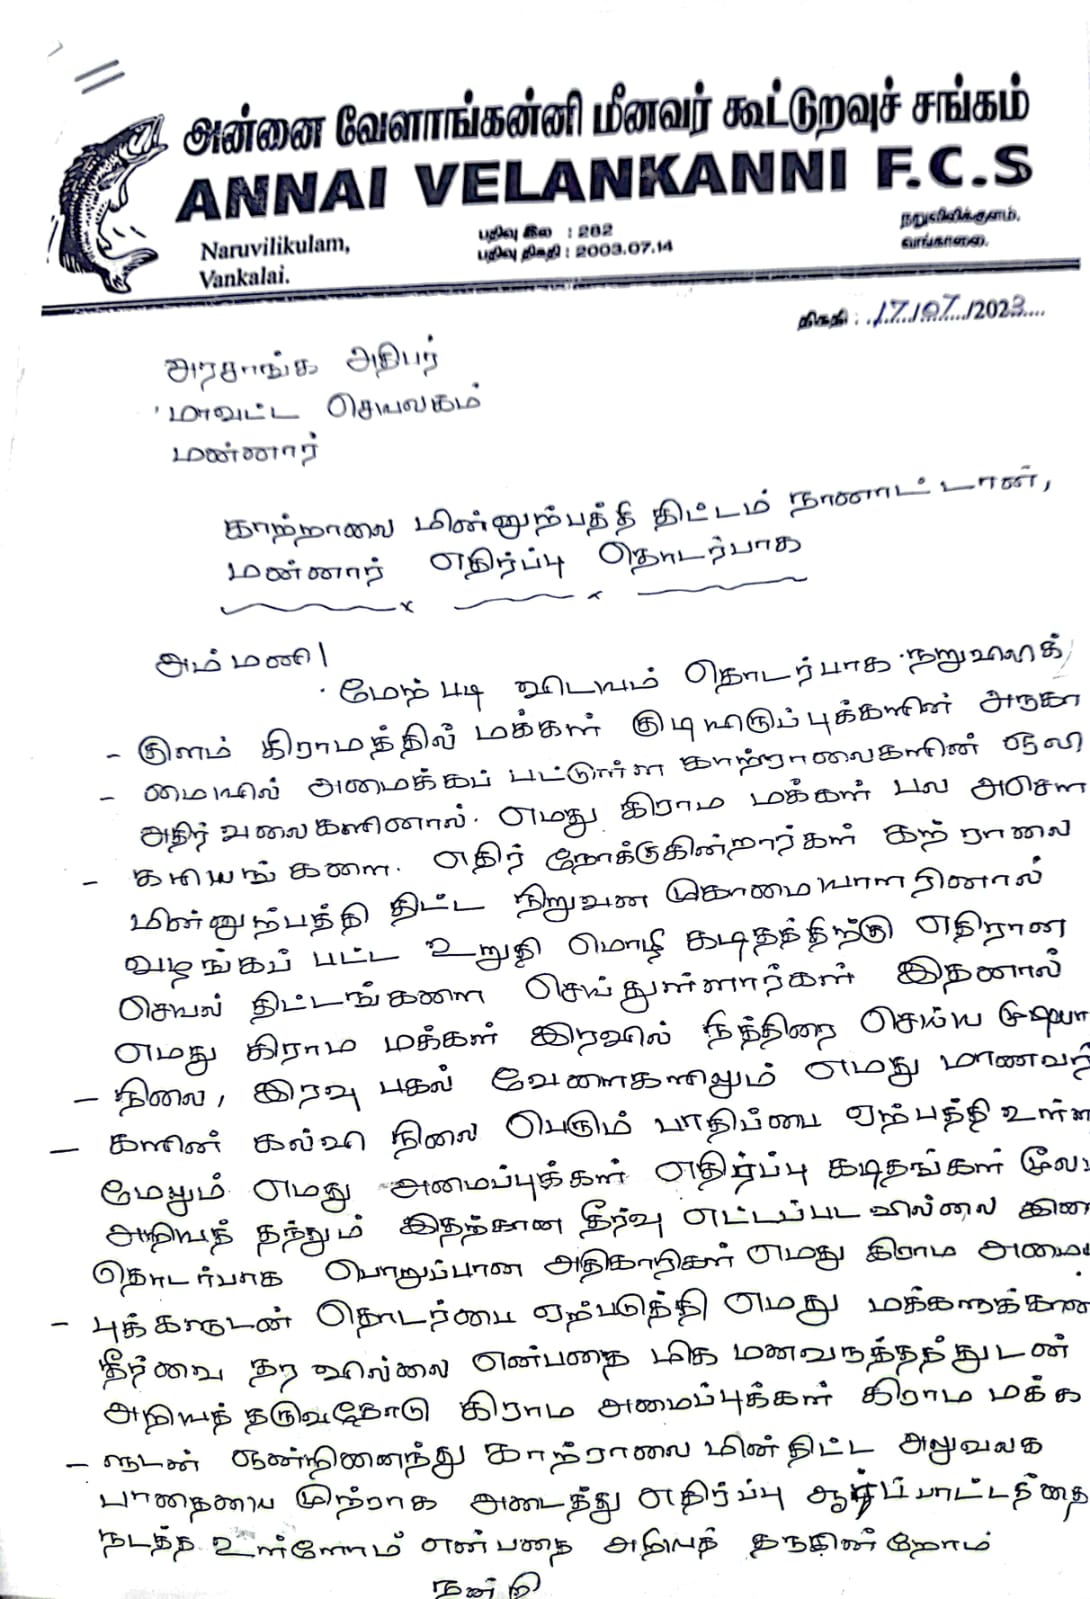 அன்னை வேளாங்கன்னி மீனவர் கூட்டுறவுச் சங்கம்
ANNAI VELANKANNI F.C.S
Naruvilikulam,
Vankalai.
பதிவு இல : 282
பதிவு திகதி : 2003.07.14
நறுவிலிக்குளம்,
வங்காலை.
திகதி : 17/07/2023
அரசாங்க அதிபர்
மாவட்ட செயலகம்
மன்னார்
காற்றாலை மின்னுற்பத்தி திட்டம் நானாட்டான்,
மன்னார் எதிர்ப்பு தொடர்பாக
அம்மணி/
மேற்படி விடயம் தொடர்பாக நறுவிலிக்
- குளம் கிராமத்தில் மக்கள் குடியிருப்புக்களின் அருகா
- மையில் அமைக்கப் பட்டுள்ள காற்றாலைகளின் ஒலி
அதிர் வலைகளினால். எமது கிராம மக்கள் பல அசௌ
- கரியங்களை. எதிர் நோக்குகின்றார்கள் கற்றாலை
மின்னுற்பத்தி திட்ட நிறுவன முகாமையாளரினால்
வழங்கப் பட்ட உறுதி மொழி கடிதத்திற்கு எதிரான
செயல் திட்டங்களை செய்துள்ளார்கள் இதனால்
எமது கிராம மக்கள் இரவில் நித்திரை செய்ய முடியா
- நிலை, இரவு பகல் வேளைகளிலும் எமது மாணவர்
- களின் கல்வி நிலை பெரும் பாதிப்பை ஏற்பத்தி உள்ள
மேலும் எமது அமைப்புக்கள் எதிர்ப்பு கடிதங்கள் மூலம்
அறியத் தந்தும் இதற்கான தீர்வு எட்டப்பட வில்லை
தொடர்பாக பொறுப்பான அதிகாரிகள் எமது கிராம அமைப்
- புக்களுடன் தொடர்பை ஏற்படுத்தி எமது மக்களுக்கான
தீர்வை தர வில்லை என்பதை மிக மனவருத்தத்துடன்
அறியத் தருவதோடு கிராம அமைப்புக்கள் கிராம மக்க
- ளுடன் ஒன்றினைந்து காற்றாலை மின் திட்ட அலுவலக
பாதையை முற்றாக அடைத்து எதிர்ப்பு ஆர்ப்பாட்டத்தை
நடத்த உள்ளோம் என்பதை அறியத் தருகின்றோம்
நன்றி